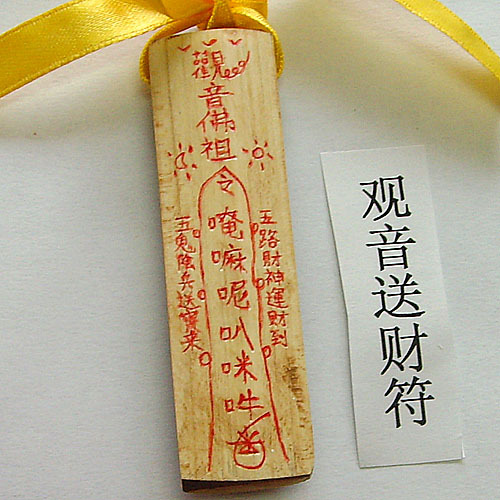 觀音佛祖
令
唵嘛呢叭咪吽
五路財神運財到
五鬼陰兵送寶來
观音送财符